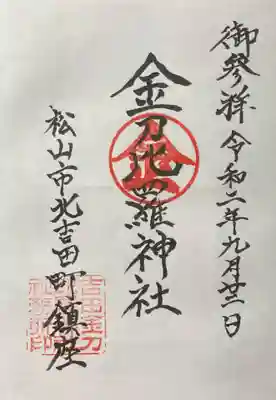 御参拝 令和二年九月廿二日
金刀比羅神社
松山市北吉田町鎮座
金